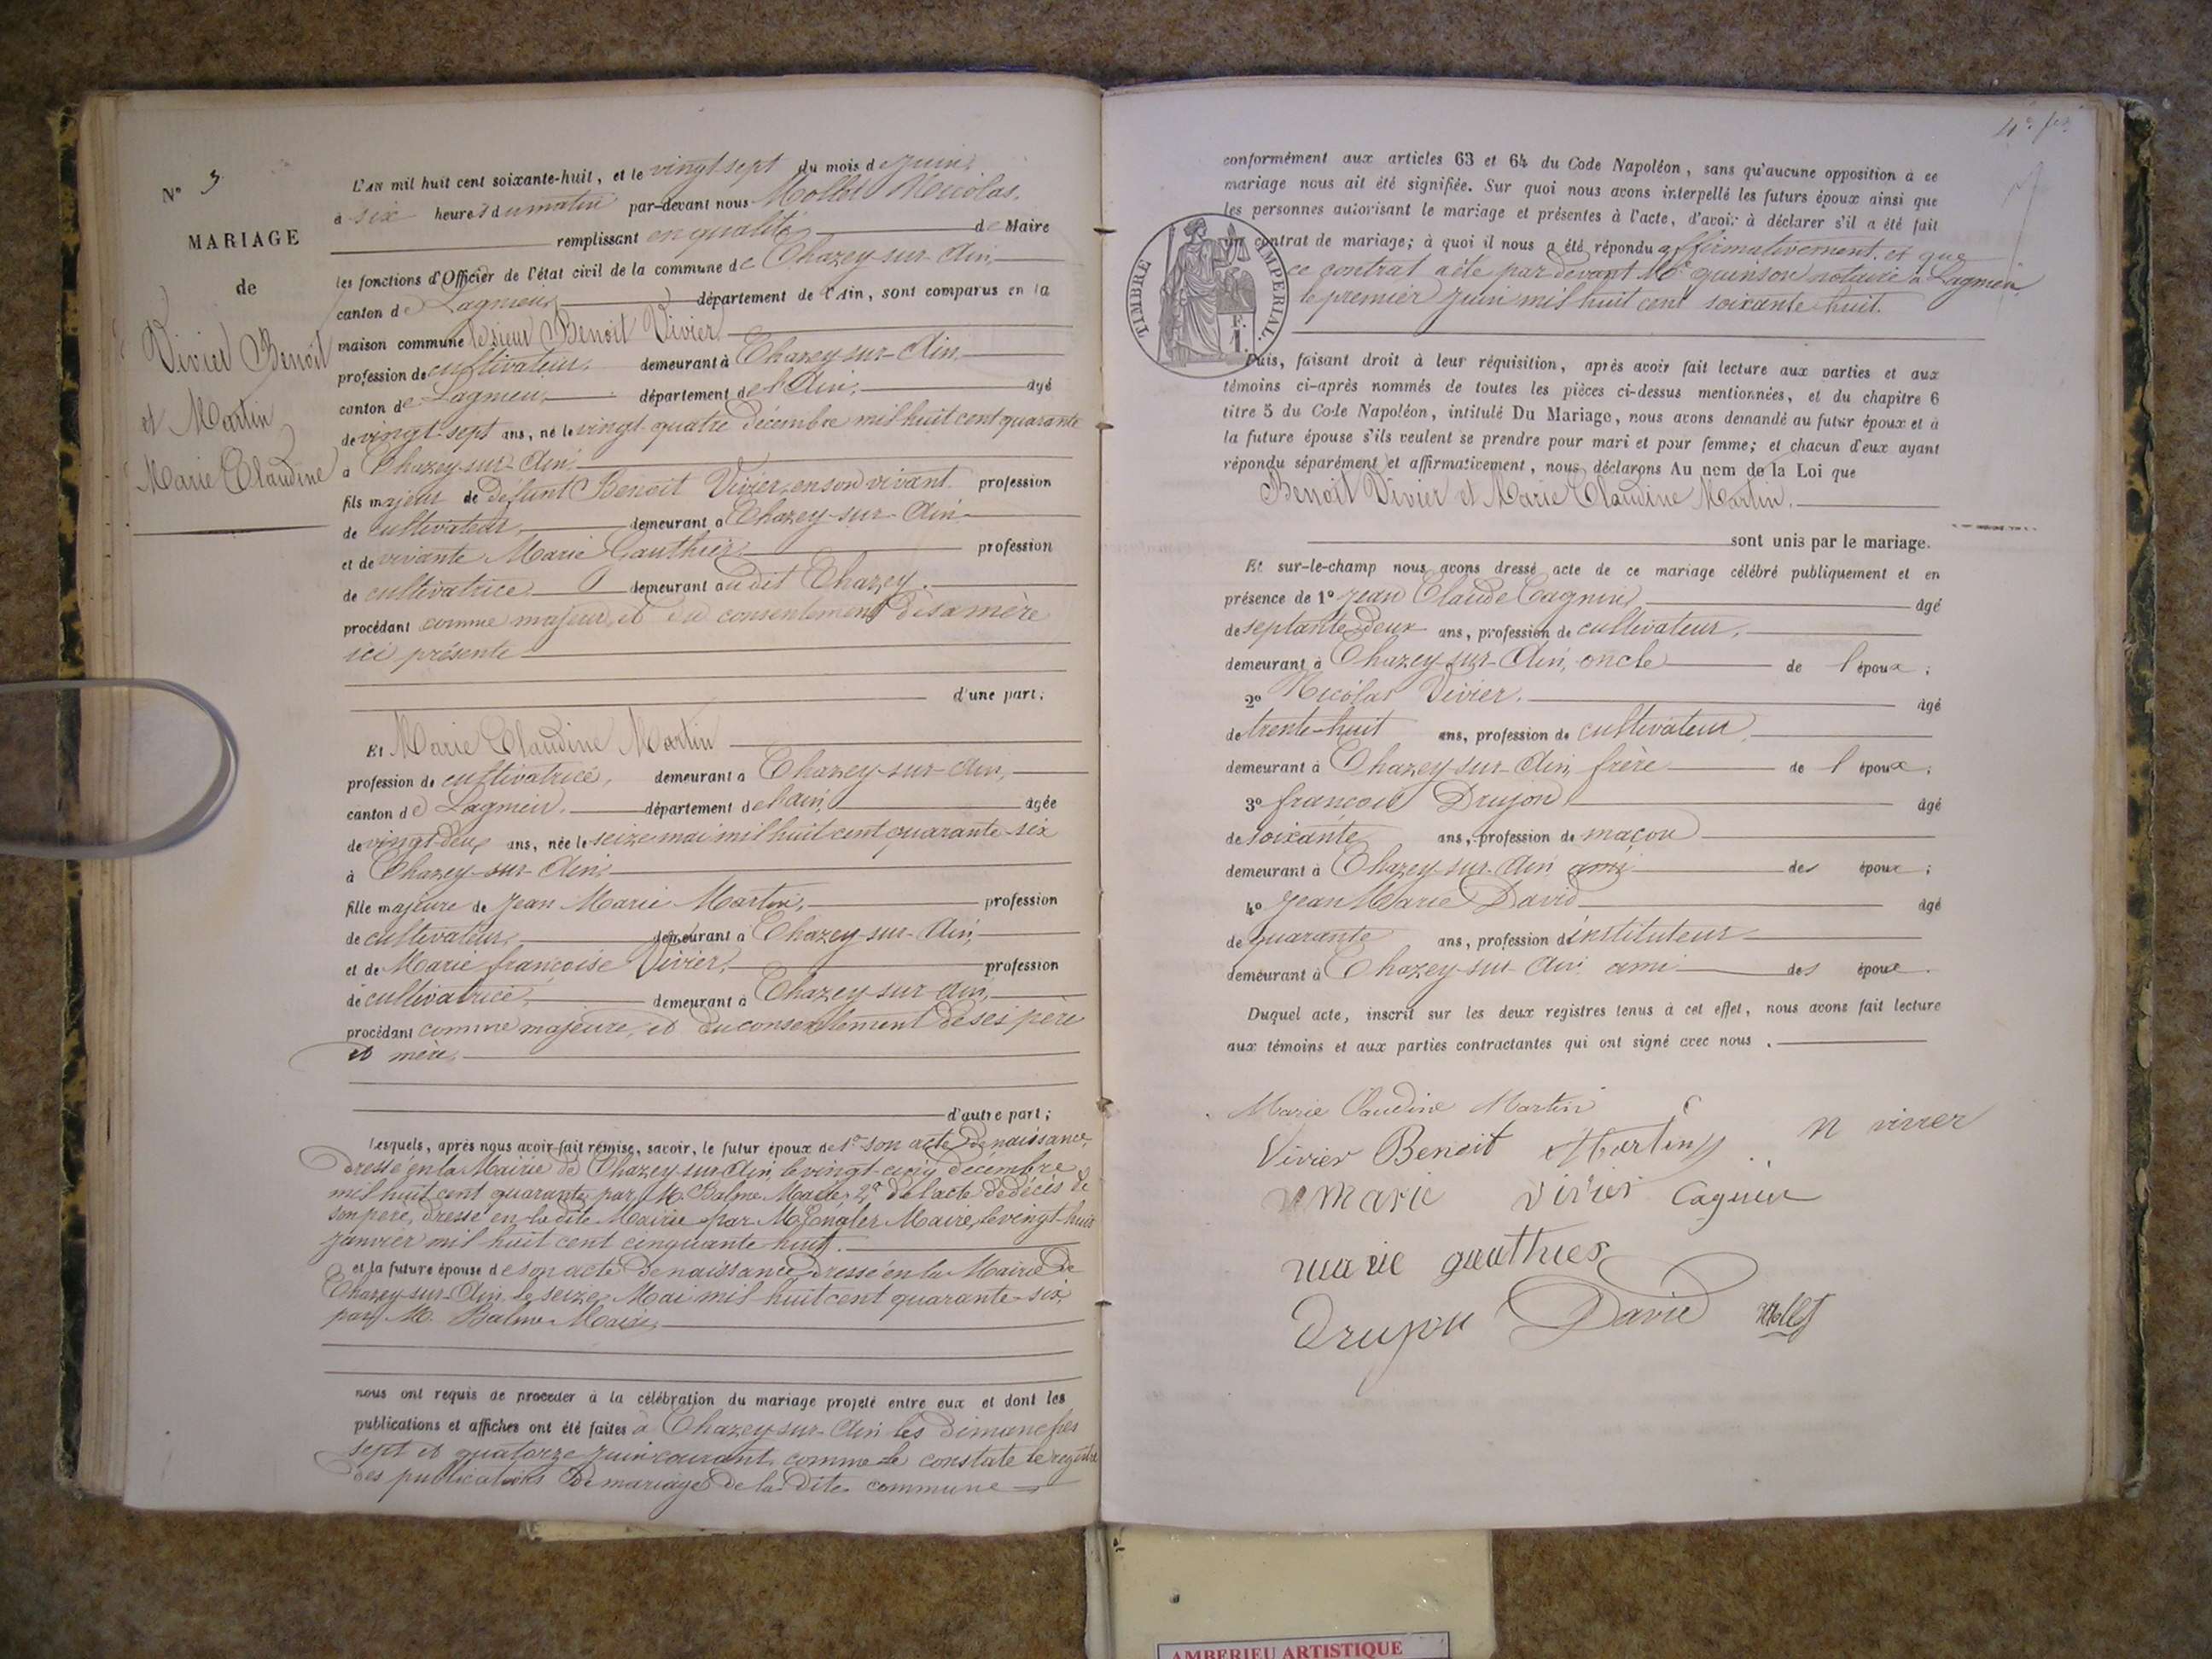 N° 3
MARIAGE
de
Vivier Benoît
et Martin
Marie Claudine
L'AN mil huit cent soixante-huit, et le vingt sept du mois de juin,
à six heures du matin par-devant nous Mollet Nicolas,
remplissant en qualité de Maire
les fonctions d'Officier de l'état civil de la commune de Chazey-sur-Ain,
canton de Lagnieu, département de l'Ain, sont comparus en la
maison commune le sieur Benoît Vivier
profession de cultivateur, demeurant à Chazey-sur-Ain,
canton de Lagnieu, département de l'Ain, âgé
de vingt-sept ans, né le vingt-quatre décembre mil huit cent quarante
à Chazey-sur-Ain
fils majeur de défunt Benoît Vivier, en son vivant profession
de cultivateur, demeurant à Chazey-sur-Ain
et de vivante Marie Gauthier profession
de cultivatrice demeurant au dit Chazey.
procédant comme majeur, et du consentement de sa mère
ici présente
d'une part;
Et Marie Claudine Martin
profession de cultivatrice, demeurant à Chazey-sur-Ain,
canton de Lagnieu, département de l'ain, âgée
de vingt-deux ans, née le seize mai mil huit cent quarante-six
à Chazey-sur-Ain
fille majeure de Jean Marie Martin, profession
de cultivateur, demeurant à Chazey-sur-Ain,
et de Marie françoise Vivier, profession
de cultivatrice, demeurant à Chazey-sur-ain,
procédant comme majeure, et du consentement de ses père
et mère,
d'autre part;
Lesquels, après nous avoir fait remise, savoir, le futur époux de 1° son acte de naissance,
dressé en la Mairie de Chazey-sur-Ain, le vingt-cinq décembre
mil huit cent quarante, par M. Balme Maire, 2° de l'acte de décès de
son père, dressé en la dite Mairie par M. Engler Maire, le vingt-huit
janvier mil huit cent cinquante huit.
et la future épouse de son acte de naissance dressé en la Mairie de
Chazey-sur-Ain, le seize Mai mil huit cent quarante-six,
par M. Balme Maire,
nous ont requis de procéder à la célébration du mariage projeté entre eux et dont les
publications et affiches ont été faites à Chazey-sur-Ain les dimanches
sept et quatorze juin courant, comme le constate le registre
des publications de mariage de la dite commune
4e
conformément aux articles 63 et 64 du Code Napoléon, sans qu'aucune opposition à ce
mariage nous ait été signifiée. Sur quoi nous avons interpellé les futurs époux ainsi que
les personnes autorisant le mariage et présentes à l'acte, d'avoir à déclarer s'il a été fait
un contrat de mariage; à quoi il nous a été répondu affirmativement, et que
ce contrat a été par devant Me quinson notaire à Lagnieu
le premier juin mil huit cent soixante huit.
TIMBRE IMPERIAL
F.
1.
Puis, faisant droit à leur réquisition, après avoir fait lecture aux parties et aux
témoins ci-après nommés de toutes les pièces ci-dessus mentionnées, et du chapitre 6
titre 5 du Code Napoléon, intitulé Du Mariage, nous avons demandé au futur époux et à
la future épouse s'ils veulent se prendre pour mari et pour femme; et chacun d'eux ayant
répondu séparément et affirmativement, nous déclarons Au nom de la Loi que
Benoît Vivier et Marie Claudine Martin.
sont unis par le mariage.
Et sur-le-champ nous avons dressé acte de ce mariage célébré publiquement et en
présence de 1° Jean Claude Cagnin, âgé
de septante deux ans, profession de cultivateur,
demeurant à Chazey-sur-Ain, oncle de l'époux;
2° Nicolas Vivier. âgé
de trente-huit ans, profession de cultivateur
demeurant à Chazey-sur-Ain, frère de l'époux;
3° françois Drujon âgé
de soixante ans, profession de maçon
demeurant à Chazey-sur-Ain ami des époux;
4° Jean Marie David âgé
de quarante ans, profession d'instituteur
demeurant à Chazey-sur-Ain ami des époux.
Duquel acte, inscrit sur les deux registres tenus à cet effet, nous avons fait lecture
aux témoins et aux parties contractantes qui ont signé avec nous.
Marie Claudine Martin
Vivier Benoit Martin N vivier
Marie vivier Cagnin
marie gauthier
Drujon David Mollet
AMBERIEU ARTISTIQUE